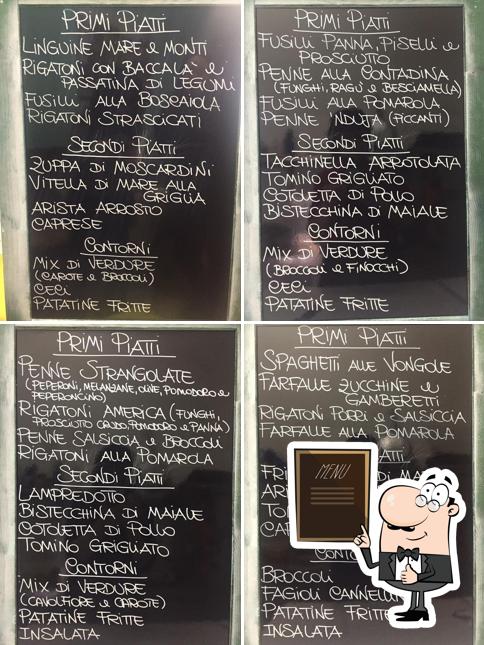 PRIMI PIATTI
LINGUINE MARE e MONTI
RIGATONI CON BACCALA' e
PASSATINA DI LEGUMI
FUSILLI ALLA BOSCAIOLA
RIGATONI STRASCICATI
SECONDI PIATTI
ZUPPA DI MOSCARDINI
VITELLA DI MARE ALLA
GRIGLIA
ARISTA ARROSTO
CAPRESE
CONTORNI
MIX DI VERDURE
(CAROTE e BROCCOLI)
CECI
PATATINE FRITTE
PRIMI PIATTI
FUSILLI PANNA, PISELLI e
PROSCIUTTO
PENNE ALLA CONTADINA
(FUNGHI, RAGU' e BESCIAMELLA)
FUSILLI ALLA POMAROLA
PENNE 'NDUJA (PICCANTI)
SECONDI PIATTI
TACCHINELLA ARROTOLATA
TOMINO GRIGLIATO
COTOLETTA DI POLLO
BISTECCHINA DI MAIALE
CONTORNI
MIX DI VERDURE
(BROCCOLI e FINOCCHI)
CECI
PATATINE FRITTE
PRIMI PIATTI
PENNE STRANGOLATE
(PEPERONI, MELANZANE, OLIVE, POMODORO e
PEPERONCINO)
RIGATONI AMERICA (FUNGHI,
PROSCIUTTO CRUDO, POMODORO e PANNA)
PENNE SALSICCIA e BROCCOLI
RIGATONI ALLA POMAROLA
SECONDI PIATTI
LAMPREDOTTO
BISTECCHINA DI MAIALE
COTOLETTA DI POLLO
TOMINO GRIGLIATO
CONTORNI
MIX DI VERDURE
(CAVOLFIORE e CAROTE)
PATATINE FRITTE
INSALATA
PRIMI PIATTI
SPAGHETTI ALLE VONGOLE
FARFALLE ZUCCHINE e
GAMBERETTI
RIGATONI PORRI e SALSICCIA
FARFALLE ALLA POMAROLA
MENU
BROCCOLI
FAGIOLI CANNELL
PATATINE FRITTE
INSALATA